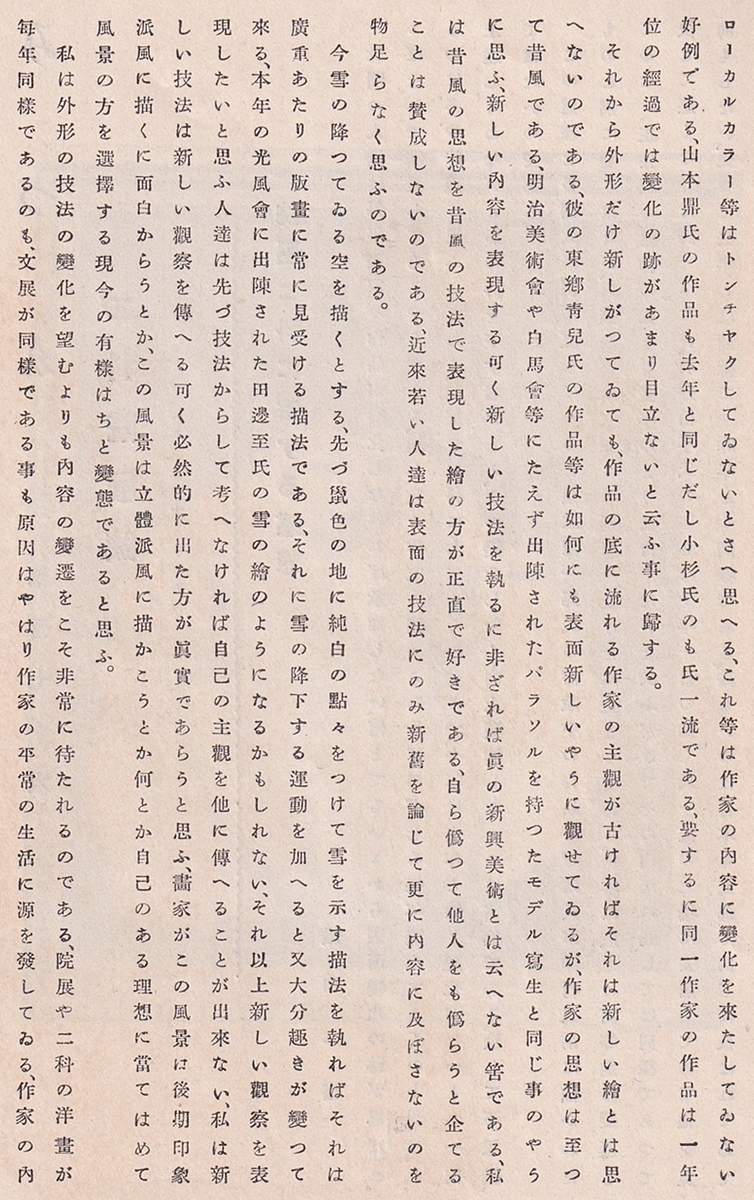 ローカルカラー等はトンチヤクしてゐないとさへ思へる、これ等は作家の内容に變化を來たしてゐない
好例である、山本鼎氏の作品も去年と同じだし小杉氏のも氏一流である、要するに同一作家の作品は一年
位の經過では變化の跡があまり目立ないと云ふ事に歸する。
それから外形だけ新しがつてゐても、作品の底に流れる作家の主觀が古ければそれは新しい繪とは思
へないのである、彼の東鄕靑兒氏の作品等は如何にも表面新しいやうに觀せてゐるが、作家の思想は至つ
て昔風である、明治美術會や白馬會等にたえず出陳されたパラソルを持つたモデル寫生と同じ事のやう
に思ふ、新しい內容を表現する可く新しい技法を執るに非ざれば眞の新興美術とは云へない筈である、私
は昔風の思想を昔風の技法で表現した繪の方が正直で好きである、自ら僞つて他人をも僞らうと企てる
ことは賛成しないのである、近來若い人達は表面の技法にのみ新舊を論じて更に內容に及ぼさないのを
物足らなく思ふのである。
今雪の降つてゐる空を描くとする、先づ鼠色の地に純白の點々をつけて雪を示す描法を執ればそれは
廣重あたりの版畫に常に見受ける描法である、それに雪の降下する運動を加へると又大分趣きが變つて
來る、本年の光風會に出陳された田邊至氏の雪の繪のようになるかもしれない、それ以上新しい觀察を表
現したいと思ふ人達は先づ技法からして考へなければ自己の主觀を他に傳へることが出來ない、私は新
しい技法は新しい觀察を傳へる可く必然的に出た方が眞實であらうと思ふ、畵家がこの風景は後期印象
派風に描くに面白からうとか、この風景は立體派風に描かこうとか何とか自己のある理想に當てはめて
風景の方を選擇する現今の有樣はちと變態であると思ふ。
私は外形の技法の變化を望むよりも內容の變遷をこそ非常に待たれるのである、院展や二科の洋畫が
每年同樣であるのも、文展が同樣である事も原因はやはり作家の平常の生活に源を發してゐる、作家の內